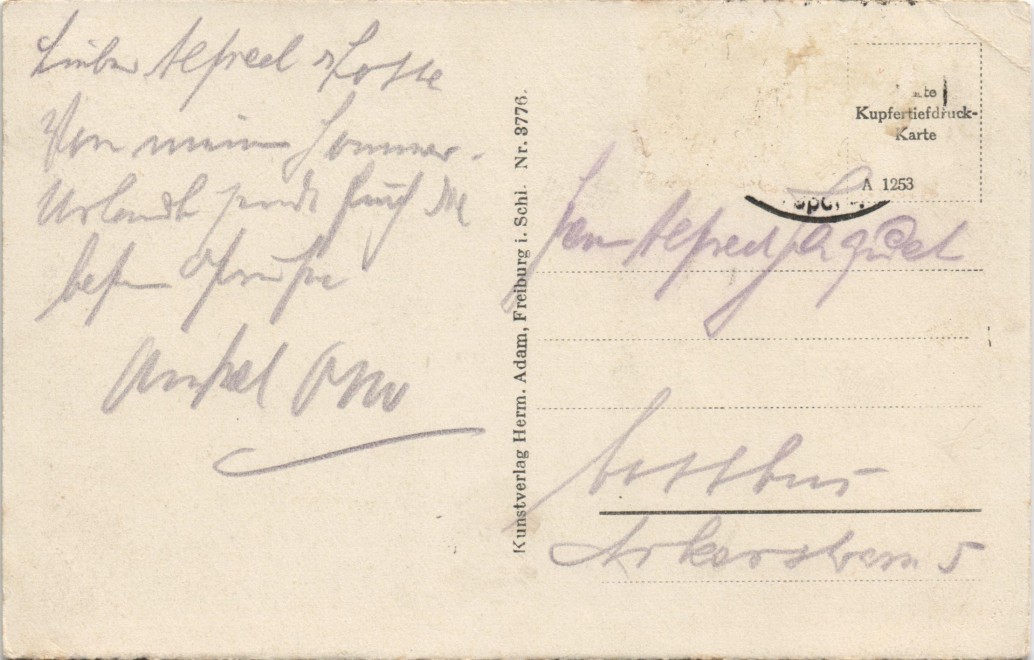 Lieber Alfred u Lotte
Von meinem Sommer-
Urlaub sendt Euch die
besten Grüße
Onkel Otto
Kunstverlag Herm. Adam, Freiburg i. Schl. Nr. 3776.
Kupfertiefdruck-
Karte
A 1253
Herrn Alfred
Cottbus
5